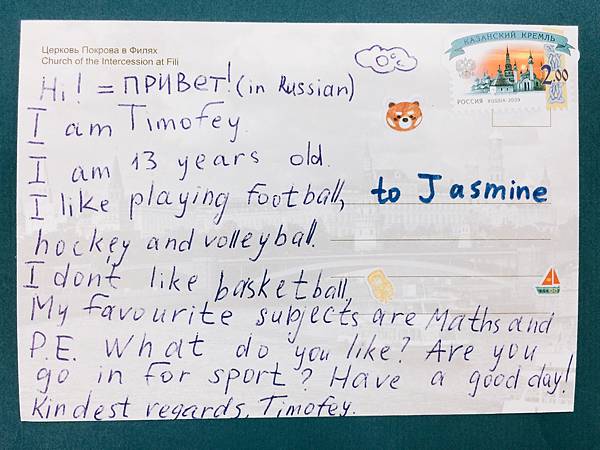 Церковь Покрова в Филях
Church of the Intercession at Fili
0°c
КАЗАНСКИЙ КРЕМЛЬ
2.00
РОССИЯ RUSSIA·2009
Hi! = ПРИВЕТ! (in Russian)
I am Timofey.
I am 13 years old.
I like playing football,
hockey and volleyball.
I don't like basketball.
My favourite subjects are Maths and
P.E. What do you like? Are you
go in for sport? Have a good day!
Kindest regards, Timofey.
to Jasmine